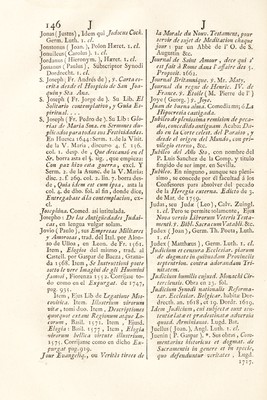 146 J
Jonas (Justus), Idem qui Jodocus Coch.
Germ. Luth. 1. cl.
Jonstonus (Joan.), Polon Hæret. 1. cl.
Jonvilleus (Carolus). 1. cl.
Jordanus (Hieronym.), Hæret. 1. cl.
Joannes (Paulus), Subscriptor Synodi
Dordrecht. 1. cl.
S. Joseph (Fr. Andrés de), 5. Carta es-
crita desde el Hospicio de San Joa-
quin y Sta. Ana.
S. Joseph (Fr. Jorge de). Su Lib. El
Solitario contemplativo, y Guia Es-
piritual.
S. Joseph (Fr. Pedro de) Su Lib: Glo-
rias de Maria Sma. en Sermones du-
plicados para todas sus Festividades.
En Huesca 1644. Serm. 1. de la Visit.
de la V. Maria, discurso 4. §. 156.
col. 1. desp. de: Que descansó en
Sr. borra asta el §. sig. que empieza:
Con paz hizo esta guerra, excl. Y
Serm. 2. de la Anunc. de la V. Maria
disc. 2. f. 169. col. 2. lin. 7. borra des-
de, Quia idem est cum ipsa, asta la
col. 4. de dho. fol. al fin, donde dice,
Entregabase á la contemplacion, ex-
cl.
Josephina. Comed. asi intitulada.
Josepho: De las Antigüedades Judai-
cas, en lengua vulgar solamente.
Jovio (Paulo), sus Empresas Militares
y Amorosas, trad. del Ital. por Alon-
so de Ulloa, en Leon de Fr. 1561.
Item, Elogios del mismo, trad. al
Castell. por Gaspar de Baeza, Grana-
da 1568. Item, Se Instructioni poste
sotto le vere Imagini de gli Huomini
famosi, Florencia 1552. Corrijase to-
do como en el Expurgat. de 1747,
pag. 931.
Item, Ejus Lib de Legatione Mos-
covitica. Item, Illustrium virorum
vitæ, tomi duo. Item, Descriptiones
quotquot extant Regionum atque Lo-
corum, Basil. 1571. Item, Ejusd.
Elogia: Basil. 1577. Item, Elogia
virorum bellica virtute illustrium,
1571. Corrijanse como en dicho Ex-
purgat pag. 919.
Jour Evangeliq., ou Verités tirées de
J
la Morale du Nouv. Testament, pour
servir de sujet de Meditation chaque
jour: par un Abbé de l'O. de S.
Augustin &c.
Journal de Saint Amour, de ce qui s'
est fait à Rome dans l'affaire des 5.
Proposit. 1662.
Journal Britannique. 5. Mr. Maty.
Journal du regne de Henric. IV. de
France, S. Etoile (M. Pierre de l')
Joye (Georg.), 5. Joye.
Juan de buena alma, Comedia asi; á La
Hipocresia castigada.
Jubileo de plenisima remision de peca-
dos, concedido antiguamente, &c. Da-
do en la Corte celest. del Paraiso, y
desde el origen del Mundo, con pri-
vilegio eterno, &c.
Jubileo del Año Sto, con nombre del
P. Luis Sanchez de la Comp. y titulo
fingido de ser imp. en Sevilla.
Jubileo. En ninguno, aunque sea pleni-
simo, se concede por él facultad á los
Confesores para absolver del pecado
de la Heregia externa. Edicto de 9
de Mar. de 1759.
Judæ, seu Juda (Leo), Calv. Zuingl.
1. cl. Pero se permite solamente, Ejus
Nova versio Librorum Veteris Testa-
menti. V. Bibl. Sacrosan Vatabli. &c.
Judex (Joan), Germ. Th. Poeta, Luth.
1. cl.
Judex (Matthæus), Germ. Luth. 1. cl.
Judicium et censura Ecclesiar. piarum
de dogmate in quibusdam Provinciis
septemtrion. contra adorandam Tri-
nitatem.
Judicium sapientum cujusd. Monachi Cis-
terciensis. Obra en 23. fol.
Judicium Synodi nationalis Reforma-
tar. Ecclesiar. Belgicar. habitæ Dor-
drecht. an. 1618, et 19. Dordr. 1619.
Idem Judicium, cui subjectæ sunt sen-
tentiæ latæ et prædicatæ adversus
quosd. Arminianos. Lugd. Bat.
Juellus (Joan), Angl. 1. cl.
Juenin (P. Gaspar). *. Sus obras, Com-
mentarius historicus et dogmat. de
Sacramentis in genere et in specie,
quo defenduntur veritates, Lugd.
1717.